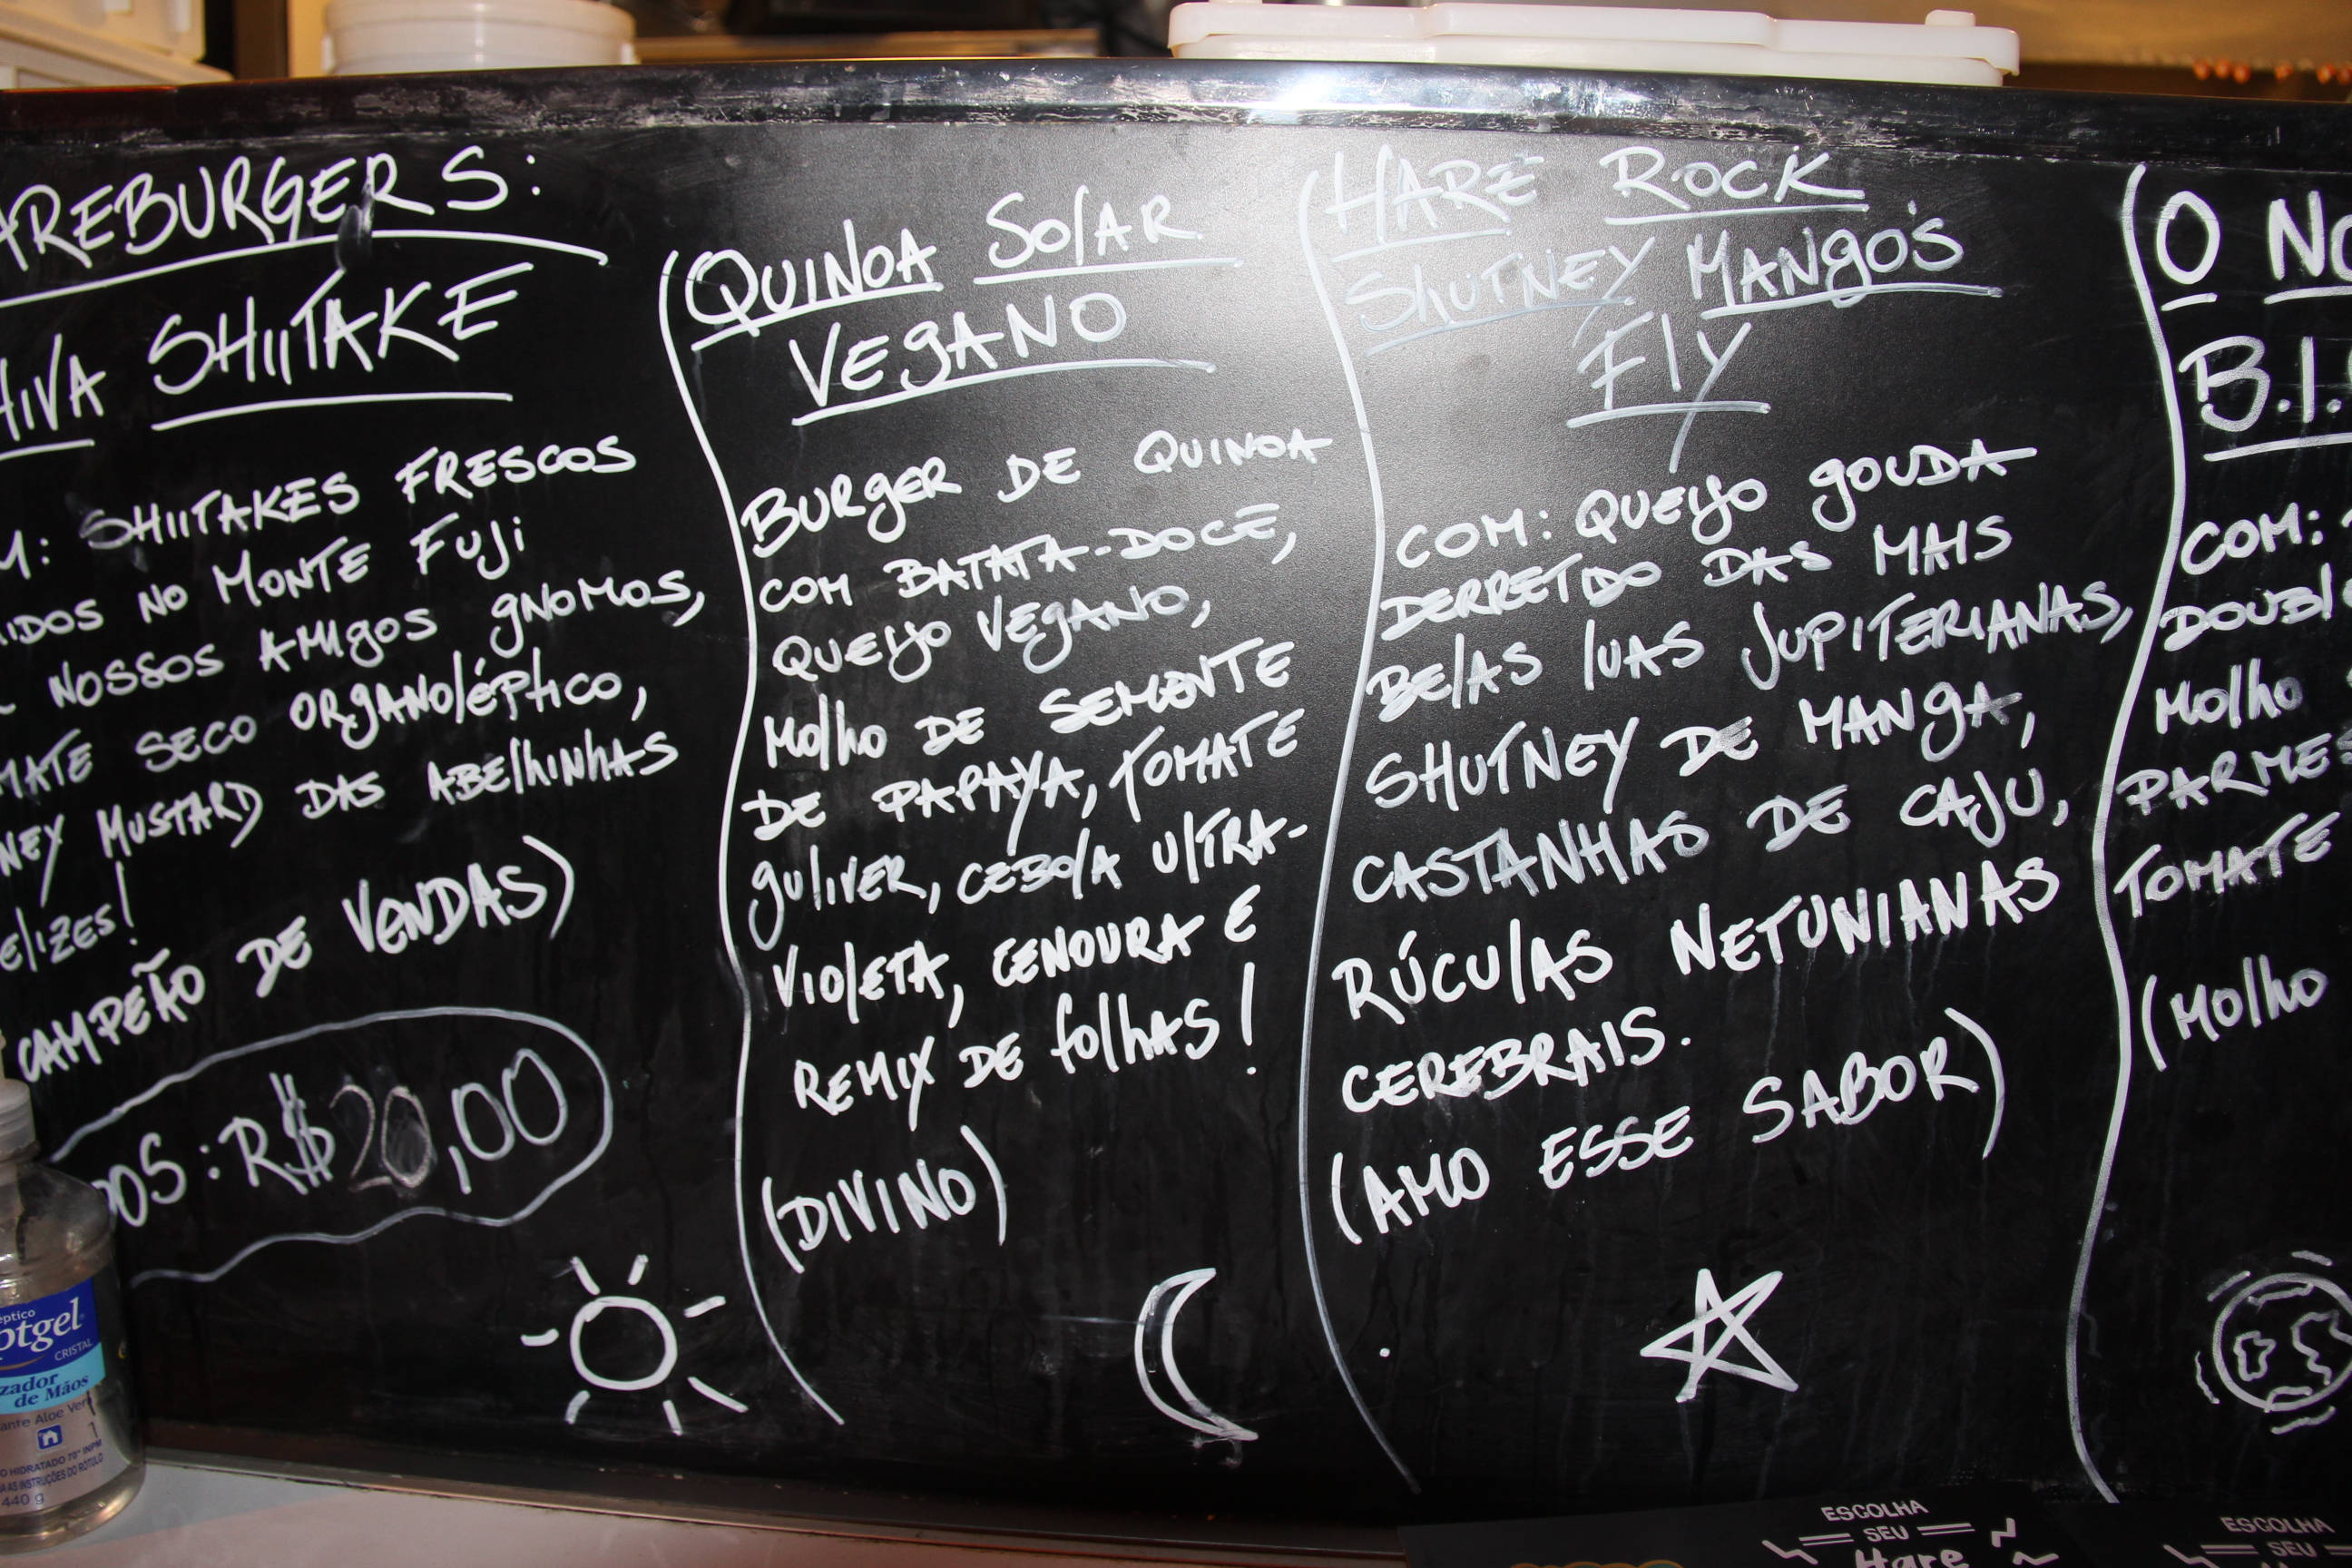 AREBURGERS:
HIVA SHIITAKE
M: SHIITAKES FRESCOS
IDOS NO MONTE FUJI
NOSSOS AMIGOS GNOMOS,
MATE SECO ORGANOLÉPTICO,
NEY MUSTARD DAS ABELHINHAS
ELIZES!
CAMPEÃO DE VENDAS)
DOS: R$20,00
QUINOA SOLAR
VEGANO
BURGER DE QUINOA
COM BATATA-DOCE,
QUEIJO VEGANO,
MOLHO DE SEMENTE
DE PAPAYA, TOMATE
GULIVER, CEBOLA ULTRA-
VIOLETA, CENOURA E
REMIX DE FOLHAS!
(DIVINO)
HARE ROCK
SHUTNEY MANGO'S
FLY
COM: QUEIJO GOUDA
DERRETIDO DAS MAIS
BELAS LUAS JUPITERIANAS,
SHUTNEY DE MANGA,
CASTANHAS DE CAJU,
RÚCULAS NETUNIANAS
CEREBRAIS.
(AMO ESSE SABOR)
O NO
B.I.
COM:
DOUBL
MOLHO
PARMES
TOMATE
(MOLHO
éptico
ptgel
CRISTAL
zador
de Mãos
ante Aloe Vera
O HIDRATADO 70° INPM
A AS INSTRUÇÕES DO RÓTULO
440 g
ESCOLHA
SEU
Hare
ESCOLHA
SEU